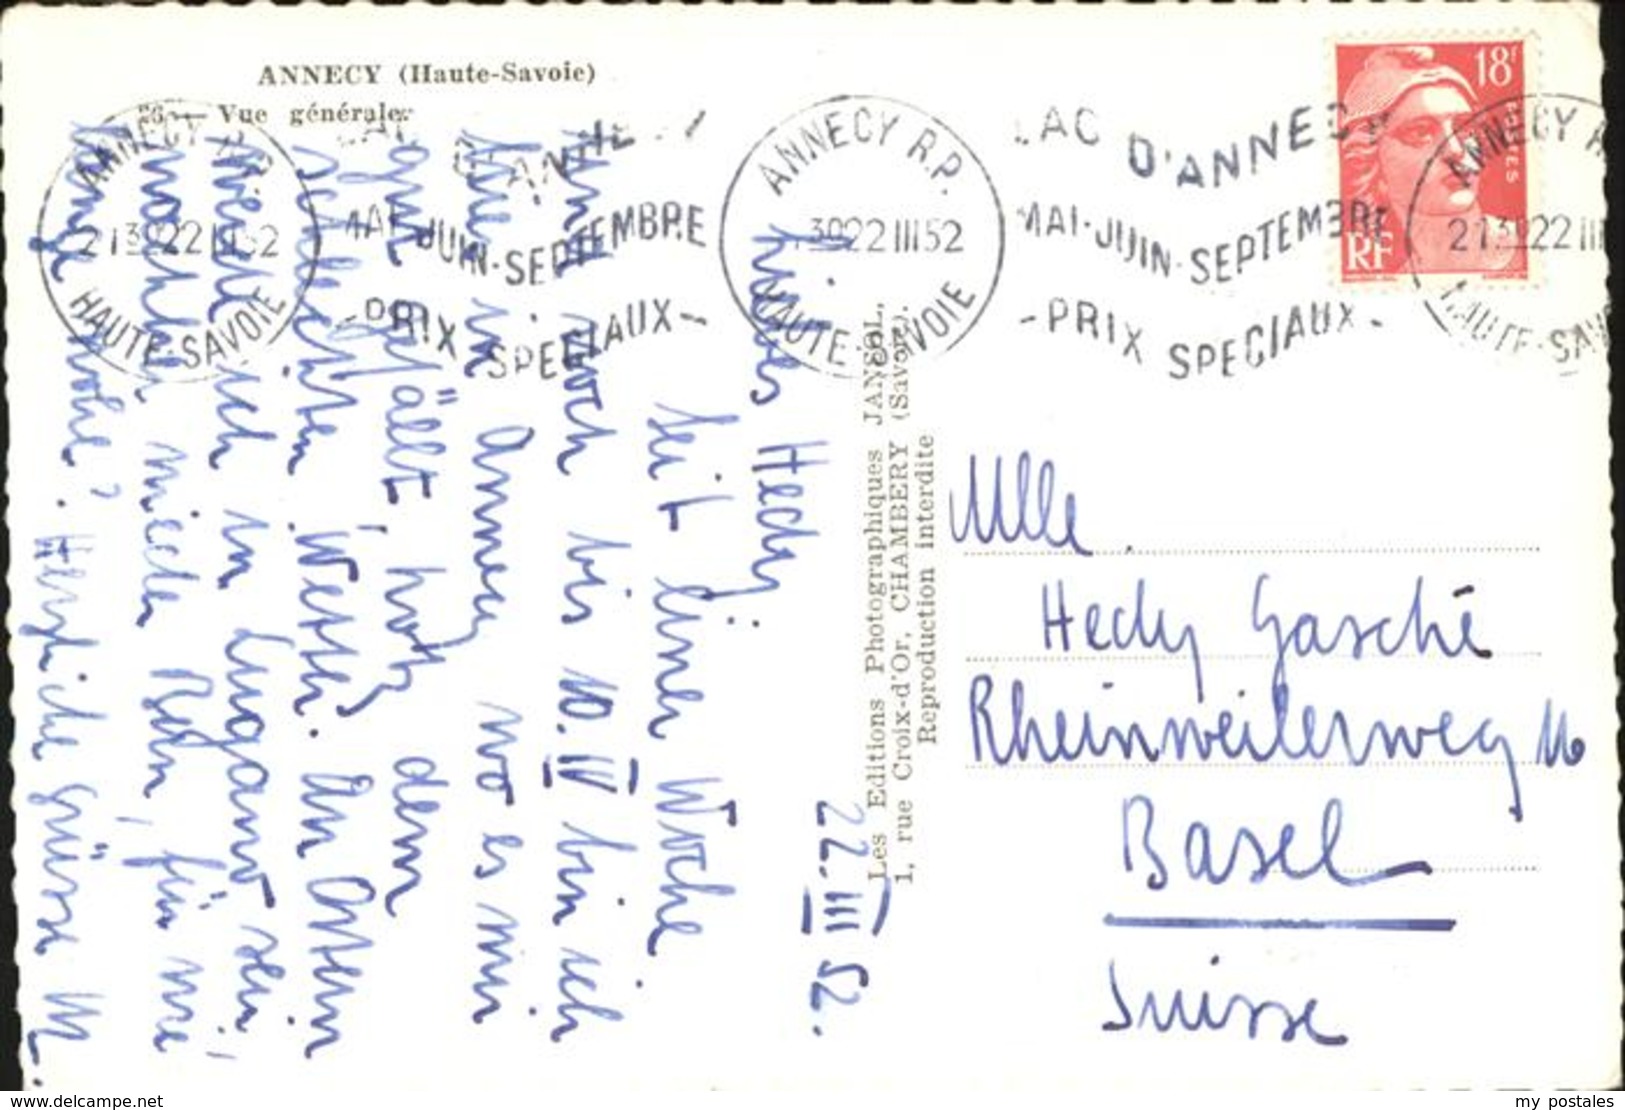 ANNECY (Haute-Savoie)
26 — Vue générale
ANNECY R.P.
21 30 22 III 52
HAUTE-SAVOIE
LAC D'ANNECY
MAI-JUIN-SEPTEMBRE
-PRIX SPECIAUX-
ANNECY R.P.
30 22 III 52
HAUTE-SAVOIE
LAC D'ANNECY
MAI-JUIN-SEPTEMBRE
-PRIX SPECIAUX-
18f
POSTES
RF
ANNECY R
21 30 22 III
HAUTE-SAVO
Les Editions Photographiques JANSOL,
1, rue Croix-d'Or, CHAMBERY (Savoie).
Reproduction interdite
22. III 52.
Liebes Hedy.
Seit einer Woche
und noch bis 10. IV bin ich
hier in Annecy wo es mir
gut gefällt, trotz dem
schlechten Wetter. An Ostern
werde ich in Lugano sein,
nachher wieder Bern, für wie
lange wohl? Herzliche Grüsse M.
Mlle.
Hedy Gasché
Rheinweilerweg 16
Basel
Suisse
www.delcampe.net
my_postales